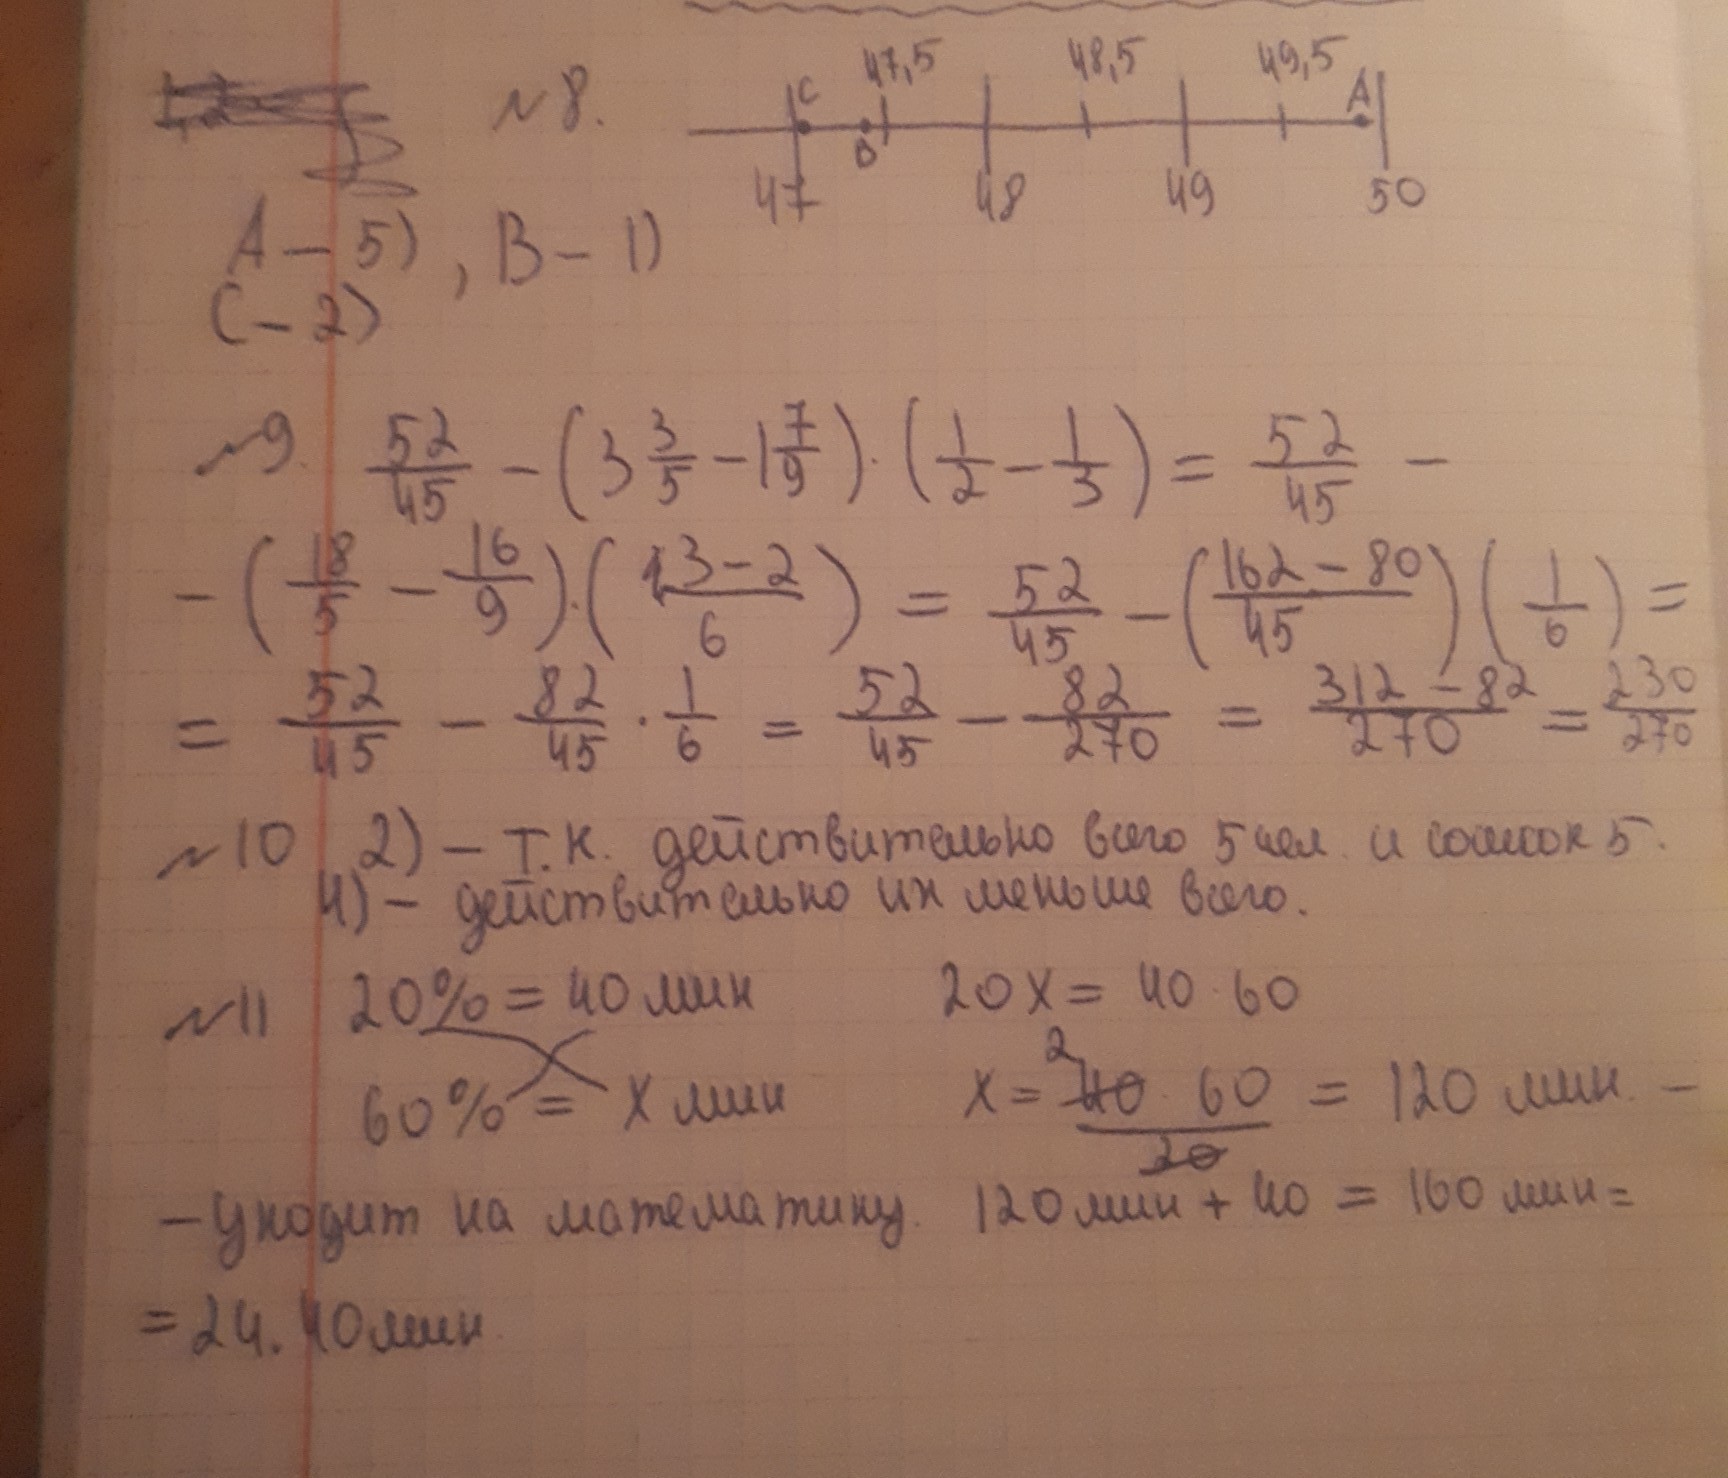 №8.
47,5 48,5 49,5
C B A
47 48 49 50
A – 5) , B – 1)
C – 2)
№9. 52/45 – (3 3/5 – 1 7/9) · (1/2 – 1/3) = 52/45 –
– (18/5 – 16/9) · (3 – 2/6) = 52/45 – (162 – 80/45) (1/6) =
= 52/45 – 82/45 · 1/6 = 52/45 – 82/270 = 312 – 82/270 = 230/270
№10 2) – т.к. действительно всего 5 чел. и сосисок 5.
4) – действительно их меньше всего.
№11 20% = 40 мин 20x = 40 · 60
60% = x мин x = 2 40 · 60/20 = 120 мин. –
– уходит на математику. 120 мин + 40 = 160 мин =
= 2ч. 40 мин.